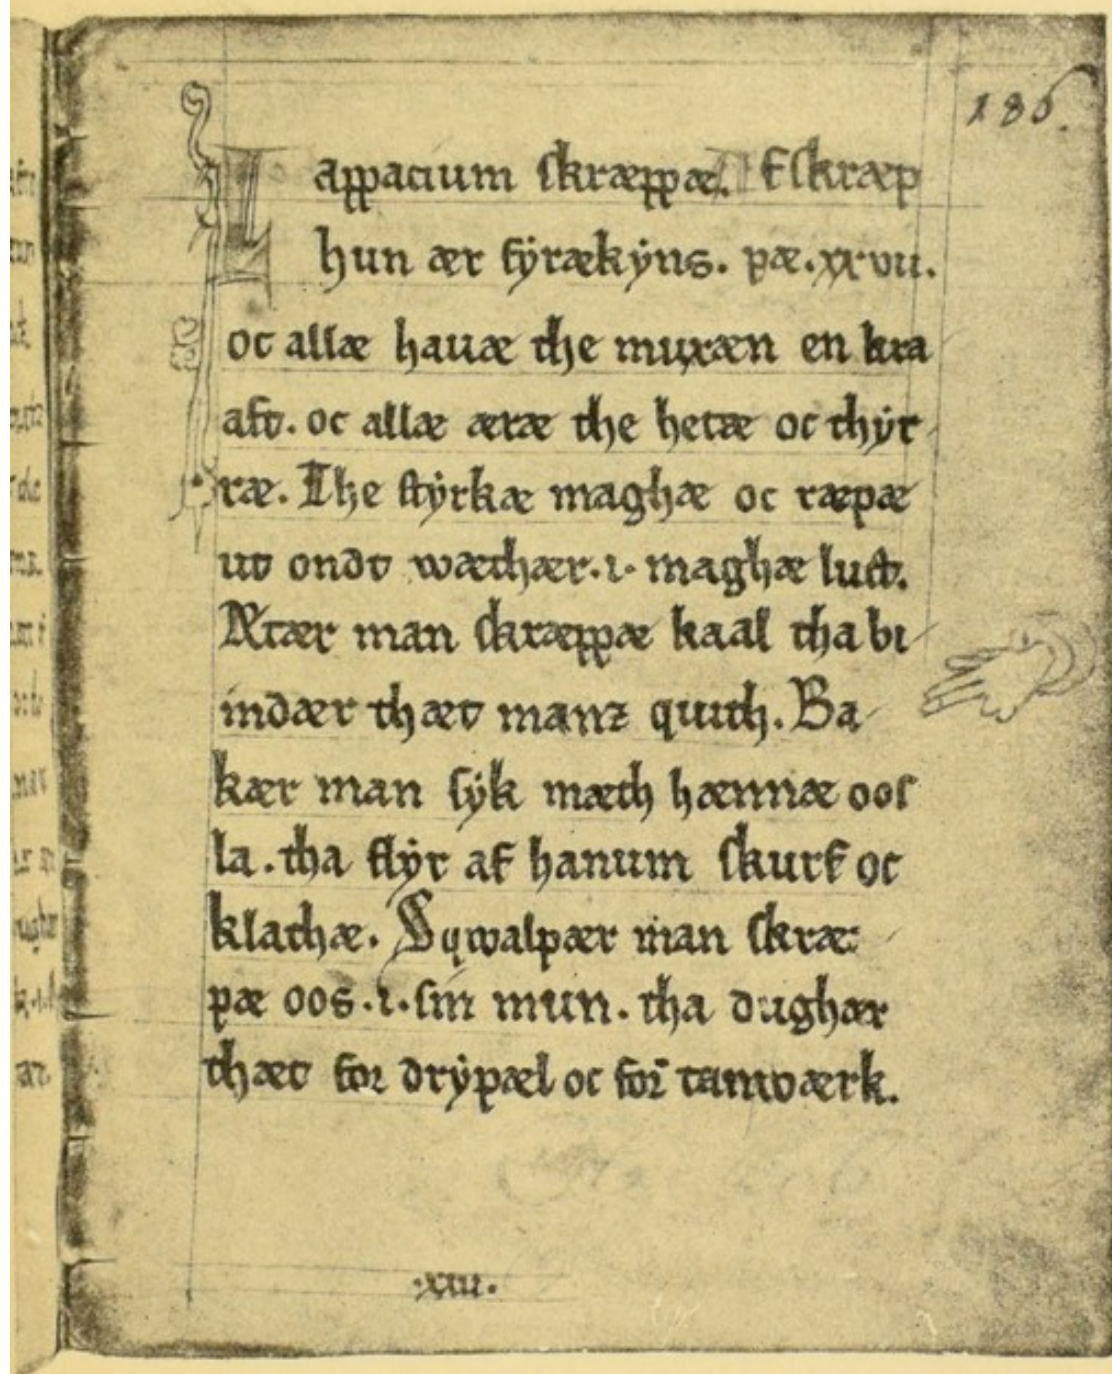 186.
Lappacium skræppæ. Eskræp
hun ær fyrækyns. pæ. xxvii.
oc allæ hauæ the muxæn en kra
aft. oc allæ æræ the hetæ oc thyr
ræ. The styrkæ maghæ oc ræpæ
ut ondt wæthær. i. maghæ luct.
Ætær man skræppæ kaal tha bi
indær thæt manz quith. Ba
kær man syk mæth hænnæ oos
la. tha flyr af hanum skurf oc
klathæ. Swalpær man skræ
pæ oos. i. sin mun. tha dughær
thæt for drypæl oc for tanwærk.
.xiii.